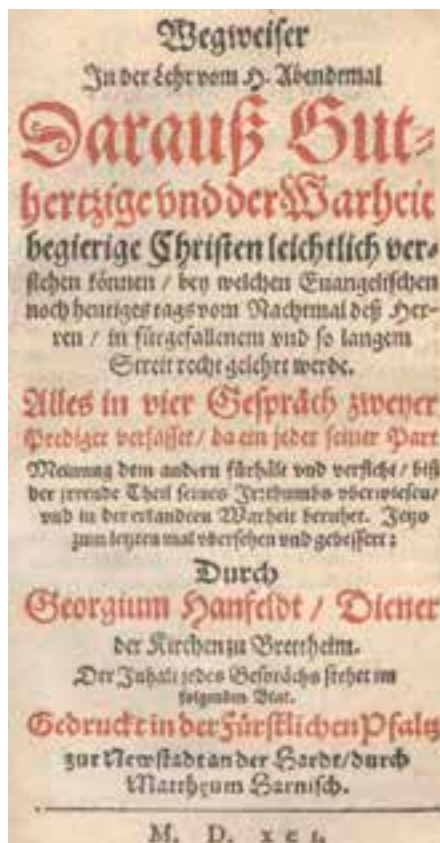 Wegweiser
In der Lehr vom H. Abendmal
Darauß Gut-
hertzige vnd der Warheit
begierige Christen leichtlich ver-
stehen können / bey welchen Euangelischen
noch heutiges tags vom Nachtmal deß Her-
ren / in fürgefallenem vnd so langem
Streit recht gelehrt werde.
Alles in vier Gespräch zweyer
Prediger verfasset / da ein jeder seiner Part
Meinung dem andern fürhält vnd verficht / biß
der jrrende Theil seines Jrrthumbs vberwiesen /
vnd in der erkandten Warheit beruhet. Jetzo
zum letzten mal vbersehen vnd gebessert:
Durch
Georgium Hanfeldt / Diener
der Kirchen zu Brettheim.
Der Inhalt jedes Gesprächs stehet im
folgenden Blat.
Gedruckt in der Fürstlichen Pfaltz
zur Newstadt an der Hardt / durch
Mattheum Harnisch.
M. D. XCI.